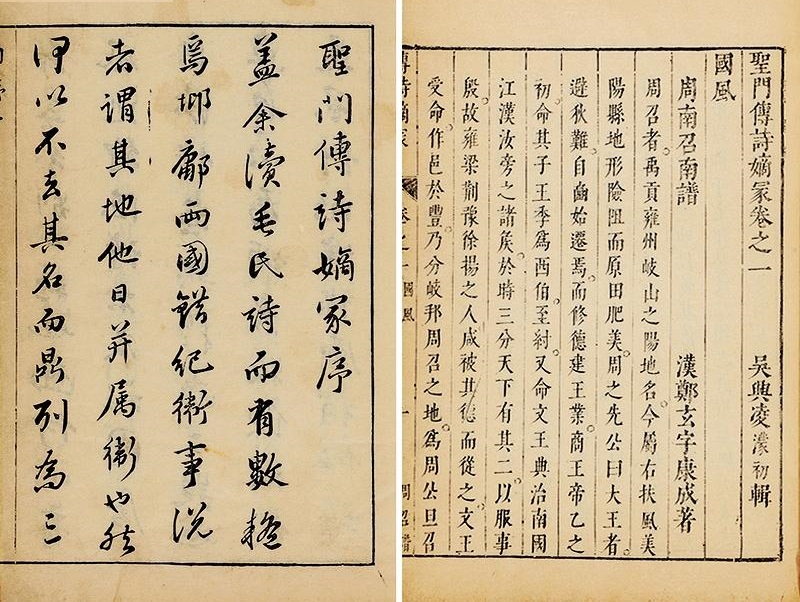 聖門傳詩嫡冢序
蓋余讀毛氏詩而有數疑
焉邶鄘兩國錯紀衛事説
者謂其地他日并属衛也然
何以不去其名而鼎列為三
聖門傳詩嫡冢卷之一 吳興凌濛初輯
國風
周南召南譜 漢鄭玄字康成著
周召者禹貢雍州岐山之陽地名今屬右扶風美
陽縣地形險阻而原田肥美周之先公曰大王者
避狄難自豳始遷焉而修德建王業商王帝乙之
初命其子王季爲西伯至紂又命文王典治南國
江漢汝旁之諸侯於時三分天下有其二以服事
殷故雍梁荆豫徐揚之人咸被其德而從之文王
受命作邑於豐乃分岐邦周召之地爲周公旦召
卷之一 國風 一